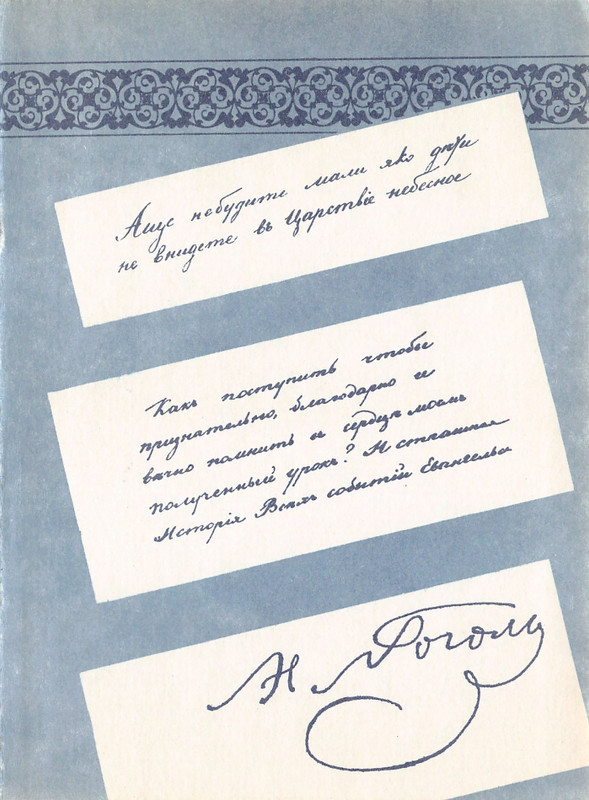 Аще небудите мали яко дѣти
не внидете въ Царствіе небесное
Какъ поступить чтобы
признательно, благодарно и
вѣчно помнить въ сердцѣ моемъ
полученный урокъ? И страшная
Исторія Всѣхъ событій Евангельск
Н Гоголь